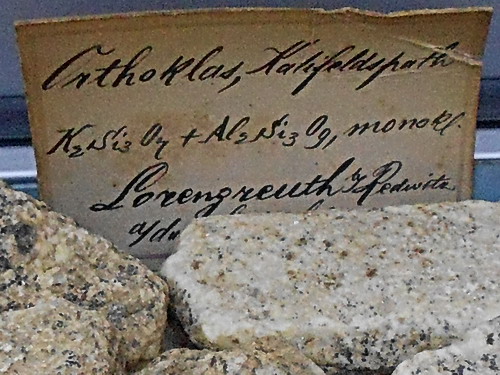 Orthoklas, Kalifeldspath
K₂Si₃O₇ + Al₂Si₃O₉, monokl.
Lorengreuth b/ Redwitz
a/d